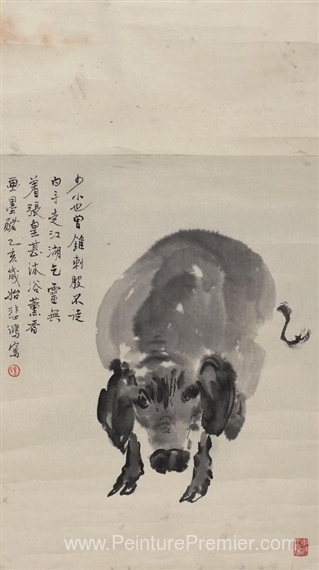 少小也曾錐刺股不徒
白手走江湖乞靈無
着張皇甚沐浴薰香
畫墨豬乙亥歲始悲鴻寫
www.PeinturePremier.com